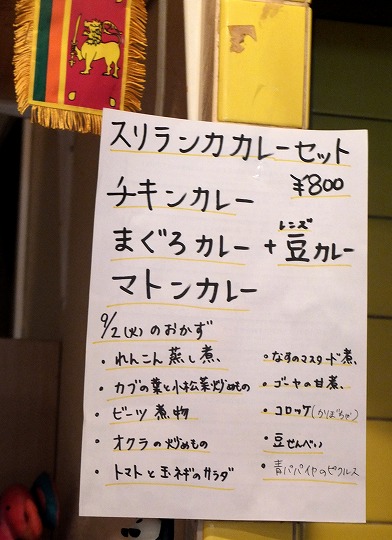 スリランカカレーセット
¥800
チキンカレー
まぐろカレー + 豆カレー
レンズ
マトンカレー
9/2(火)のおかず
・れんこん蒸し煮
・カブの葉と小松菜炒めもの
・ビーツ煮物
・オクラの炒めもの
・トマトと玉ネギのサラダ
・なすのマスタード煮
・ゴーヤの甘煮
・コロッケ(かぼちゃ)
・豆せんべい
・青パパイヤのピクルス